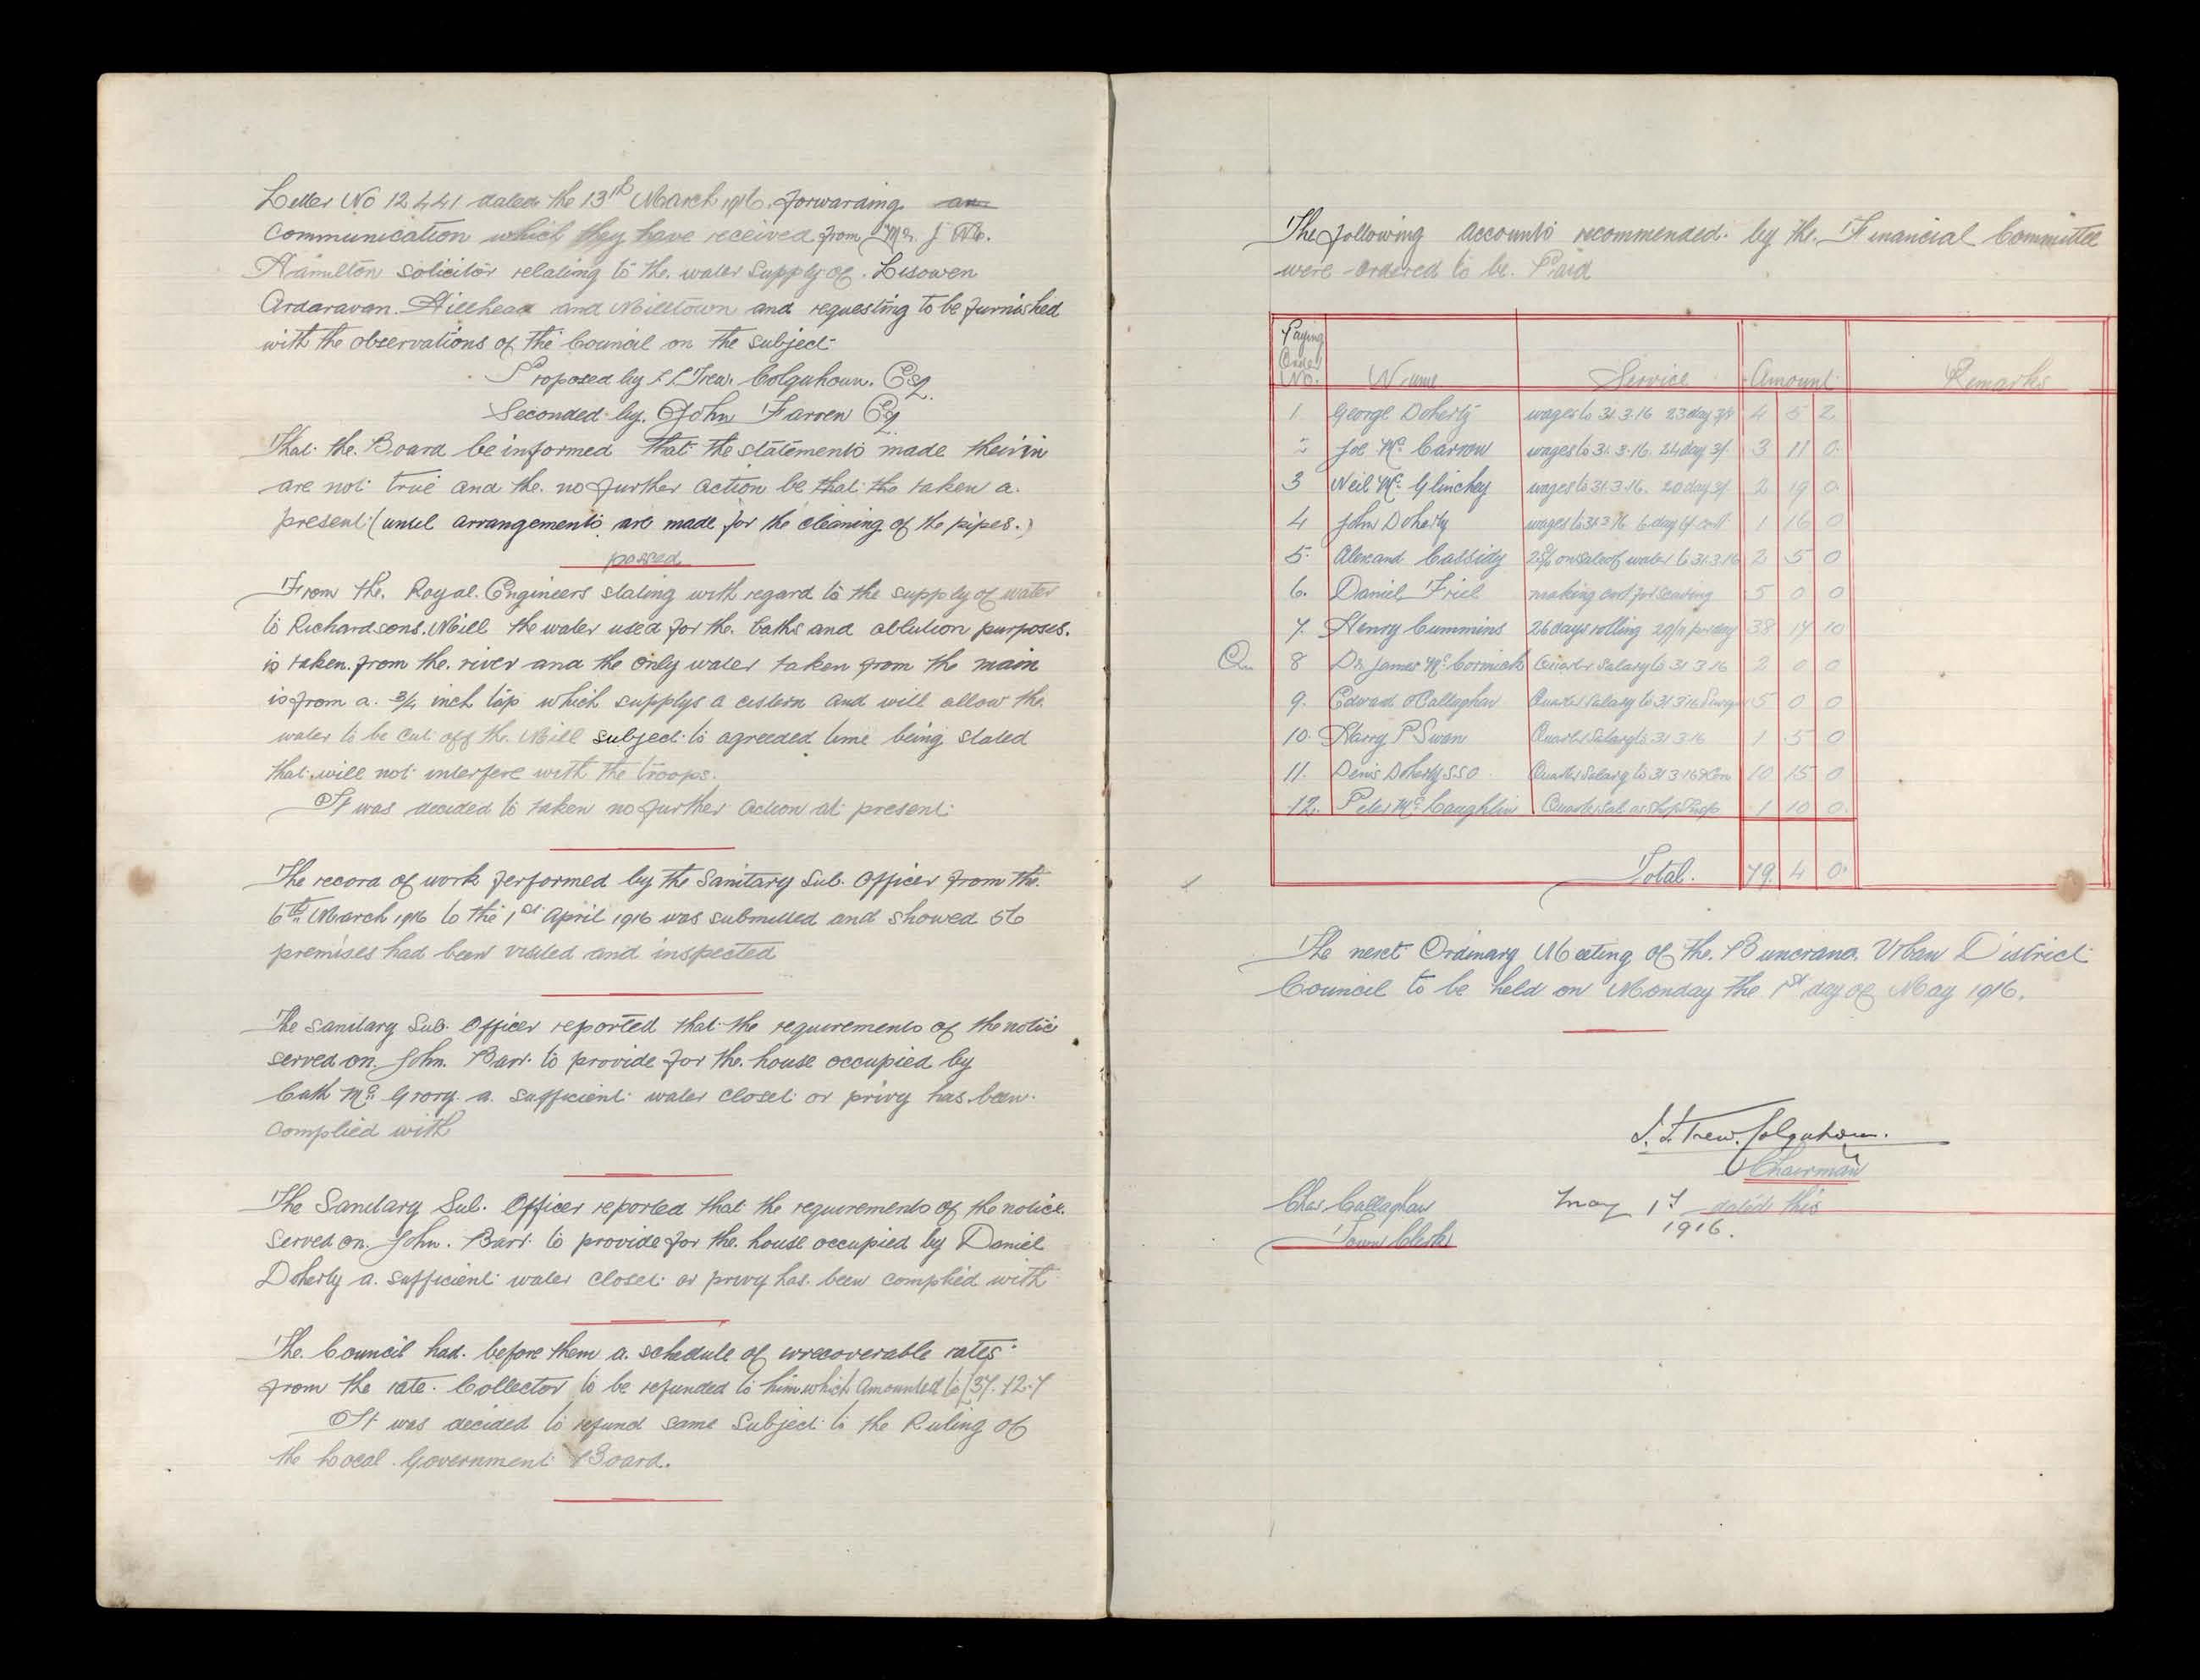 Letter No 12441 dated the 13th March 1916. forwarding an
Communication which they have received from Mr. J
Hamilton solicitor relating to the water Supply of. Lisowen
Ardaravan. Hillhead and Milltown and requesting to be furnished
with the observations of the Council on the subject
Proposed by Trew. Colquhoun. Esq.
Seconded by. John Farren Esq
That the Board be informed that the statements made theirin
are not true and the no further action be that the taken a
present (until arrangements are made for the cleaning of the pipes.)
passed
From the. Royal. Engineers stating with regard to the supply of water
to Richardsons. Mill the water used for the. baths and ablution purposes.
is taken from the. river and the only water taken from the main
is from a. 3/4 inch tap which supplys a cistern and will allow the
water to be cut off the. Mill subject to agreeded time being stated
that will not interfere with the troops.
It was decided to taken no further action at present
The record of work performed by the Sanitary Sub. Officer from the.
6th March 1916 to the 1st April 1916 was submitted and showed 56
premises had been visited and inspected
The Sanitary Sub. Officer reported that the requirements of the notice
served on. John. Barr. to provide for the. house occupied by
Cath Mc Grory. a. sufficient water closet or privy has been
complied with
The Sanitary Sub. Officer reported that the requirements of the notice.
served on. John. Barr. to provide for the. house occupied by Daniel
Doherty a. sufficient water closet or privy has been complied with
The Council had. before them a. schedule of urrecoverable rates
from the rate. Collector to be refunded to him which amounted to £37.12.7
It was decided to refund same Subject to the Ruling of
the Local. Government Board.
The following accounts recommended. by the. Financial Committee
were ordered to be. Paid
Paying Order No. Name Service Amount Remarks
1. George Doherty wages to 31.3.16 23 day 4 5 2
2 Joe Mc Carron wages to 31.3.16. 24 day 3/ 3 11 0
3 Neil Mc Glinchey wages to 31.3.16. 20 day 3/ 2 19 0
4 John Doherty wages to 31 3 16 6 day 1 16 0
5. Alexand Cassidy on sale of water to 31.3.16 2 5 0
6. Daniel Friel making cart for 5 0 0
7. Henry Cummins 26 days rolling 29/11 per day 38 17 10
8 Dr James Mc Cormick Quarter Salary to 31 3 16 2 0 0
9. Edward O'Callaghan Quarter Salary to 31 3 16 5 0 0
10. Harry P Swan Quarter Salary to 31 3 16 1 5 0
11. Denis Doherty SSO Quarter Salary to 31 3 16 10 15 0
12. Peter Mc Laughlin Quarter Sal. as Shop Insp 1 10 0
Total. 79. 4 0
The next Ordinary Meeting of the. Buncrana. Urban District
Council to be held on Monday the 1st day of May 1916.
Trew. Colquhoun.
Chairman
Chas Callaghan May 1st dated this
Town Clerk 1916.